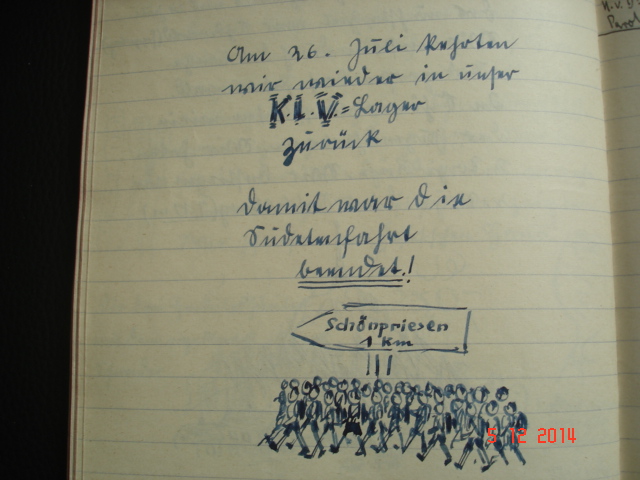 Am 26. Juli kehrten
wir wieder in unser
K.L.V.=Lager
zurück
Damit war die
Sudetenfahrt
beendet!
Schönpriesen
1 km
5 12 2014